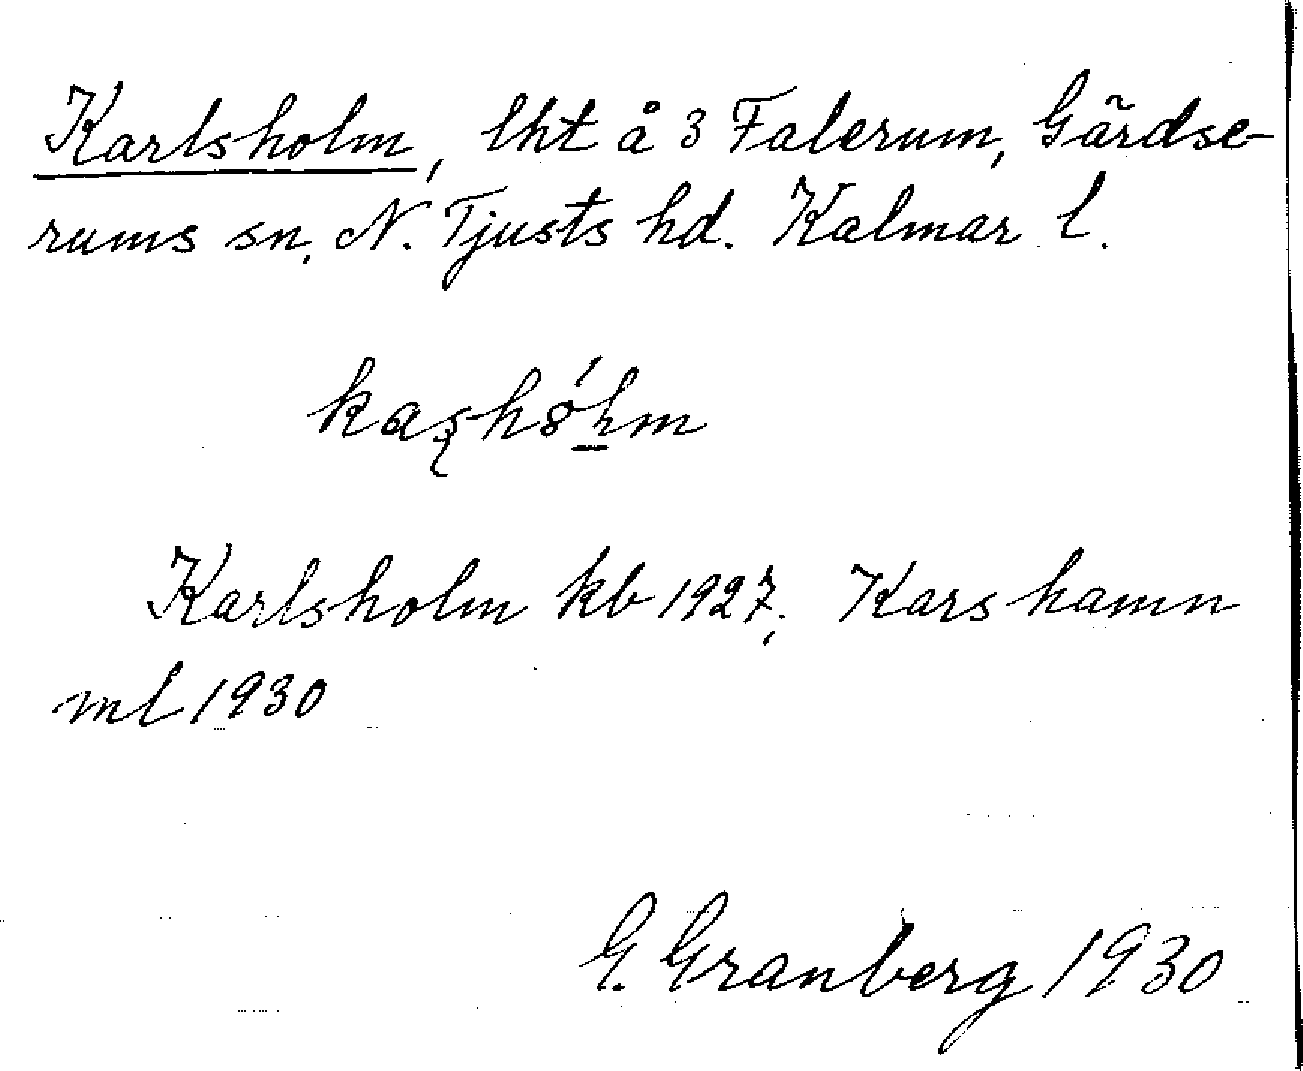 Karlsholm, lht å 3 Falerum, Gärdse-
rums sn, N. Tjusts hd. Kalmar l.
Karlsholm kb 1927; Kars hamn
ml 1930
G. Granberg 1930